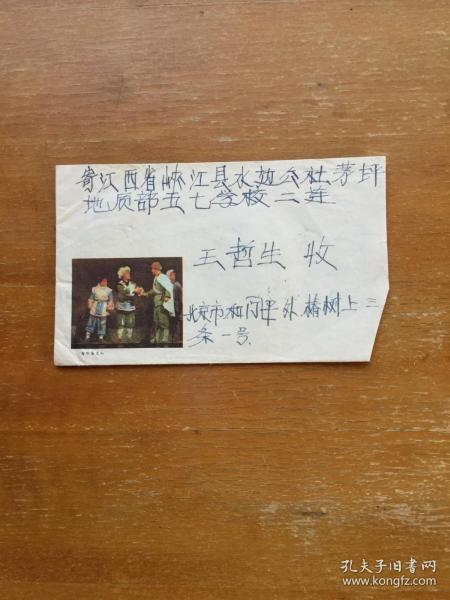 寄江西省峡江县水边公社茅坪
地质部五七学校二连
王哲生 收
北京市和门里外椿树上三
条一号
孔夫子旧书网
www.kongfz.com